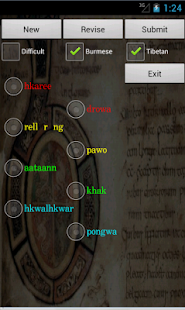 3G 1:24
New Revise Submit
Difficult Burmese Tibetan
Exit
hkaree
rell r ng
pawo
aataann
khak
hkwalhkwar
pongwa